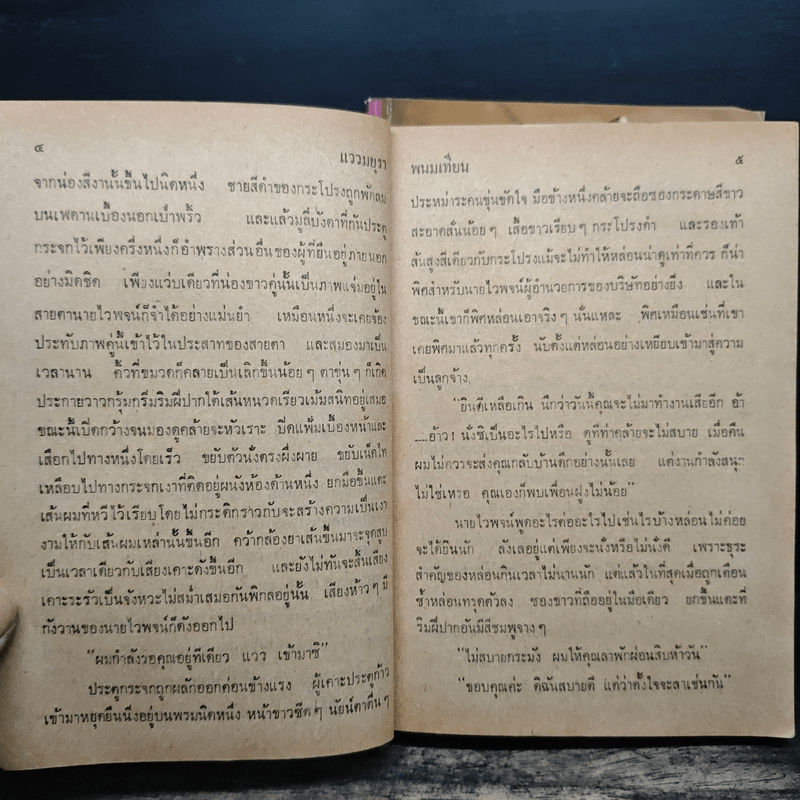 ๔
แววมยุรา
จากน่องสีงานั้นขึ้นไปนิดหนึ่ง ชายสีดำของกระโปรงถูกพัดลม
บนเพดานเบื้องนอกเป่าพริ้ว และแล้วมู่ลี่บังตาที่กั้นประตู
กระจกไว้เพียงครึ่งหนึ่งก็อำพรางส่วนอื่นของผู้ที่ยืนอยู่ภายนอก
อย่างมิดชิด เพียงแว่บเดียวที่น่องขาวคู่นั้นเป็นภาพแจ่มอยู่ใน
สายตานายไวพจน์ก็จำได้อย่างแม่นยำ เหมือนหนึ่งจะเคยจ้อง
ประทับภาพคู่นี้เข้าไว้ในประสาทของสายตา และสมองมาเป็น
เวลานาน คิ้วที่ขมวดก็คลายเป็นเลิกขึ้นน้อยๆ ตาขุ่นๆ ก็เกิด
ประกายวาวกรุ้มกริ่มริมฝีปากใต้เส้นหนวดเรียวเม้มสนิทอยู่เสมอ
ขณะนี้เปิดกว้างจนมองดูคล้ายจะหัวเราะ ปิดแฟ้มเบื้องหน้าและ
เลือกไปทางหนึ่งโดยเร็ว ขยับตัวนั่งตรงผึ่งผาย ขยับเน็คไท
เหลือบไปทางกระจกเงาที่ติดอยู่ผนังห้องด้านหนึ่ง ยกมือขึ้นแตะ
เส้นผมที่หวีไว้เรียบโดยไม่กระดิกราวกับจะสร้างความเป็นเงา
งามให้กับเส้นผมเหล่านั้นขึ้นอีก คว้ากล้องยาเส้นขึ้นมาจะจุดสูบ
เป็นเวลาเดียวกับเสียงเคาะดังขึ้นอีก และยังไม่ทันจะสิ้นเสียง
เคาะระรัวเป็นจังหวะไม่สม่ำเสมอกันพิกลอยู่นั้น เสียงห้าวๆ มี
กังวานของนายไวพจน์ก็ดังออกไป
“ผมกำลังรอคุณอยู่ทีเดียว แวว เข้ามาซิ”
ประตูกระจกถูกผลักออกค่อนข้างแรง ผู้เคาะประตูก้าว
เข้ามาหยุดยืนนิ่งอยู่บนพรมนิดหนึ่ง หน้าขาวซีดๆ นัยน์ตาตื่นๆ
พนมเทียน
๕
ประหม่าระคนขุ่นขัดใจ มือข้างหนึ่งคล้ายจะถือซองกระดาษสีขาว
สะอาดสั่นน้อยๆ เสื้อขาวเรียบๆ กระโปรงดำ และรองเท้า
ส้นสูงสีเดียวกับกระโปรงแม้จะไม่ทำให้หล่อนน่าดูเท่าที่ควร ก็น่า
พิศสำหรับนายไวพจน์ผู้อำนวยการของบริษัทอย่างยิ่ง และใน
ขณะนี้เขาก็พิศหล่อนเอาจริงๆ นั่นแหละ พิศเหมือนเช่นที่เขา
เคยพิศมาแล้วทุกครั้ง นับตั้งแต่หล่อนย่างเหยียบเข้ามาสู่ความ
เป็นลูกจ้าง.
“ยินดีเหลือเกิน นึกว่าวันนี้คุณจะไม่มาทำงานเสียอีก อ้า
....อ้าว! นั่งซิเป็นอะไรไปหรือ ดูทีท่าคล้ายจะไม่สบาย เมื่อคืน
ผมไม่ควรจะส่งคุณกลับบ้านดึกอย่างนั้นเลย แต่งานกำลังสนุก
ไม่ใช่เหรอ คุณเองก็พบเพื่อนฝูงไม่น้อย”
นายไวพจน์พูดอะไรต่ออะไรไปเช่นไรบ้างหล่อนไม่ค่อย
จะได้ยินนัก ลังเลอยู่แต่เพียงจะนั่งหรือไม่นั่งดี เพราะธุระ
สำคัญของหล่อนกินเวลาไม่นานนัก แต่แล้วในที่สุดเมื่อถูกเตือน
ซ้ำหล่อนทรุดตัวลง ซองขาวที่ถืออยู่ในมือเดียว ยกขึ้นแตะที่
ริมฝีปากอันมีสีชมพูจางๆ
“ไม่สบายกระมัง ผมให้คุณลาพักผ่อนสิบห้าวัน”
“ขอบคุณค่ะ ดิฉันสบายดี แต่ว่าตั้งใจจะลาเช่นกัน”